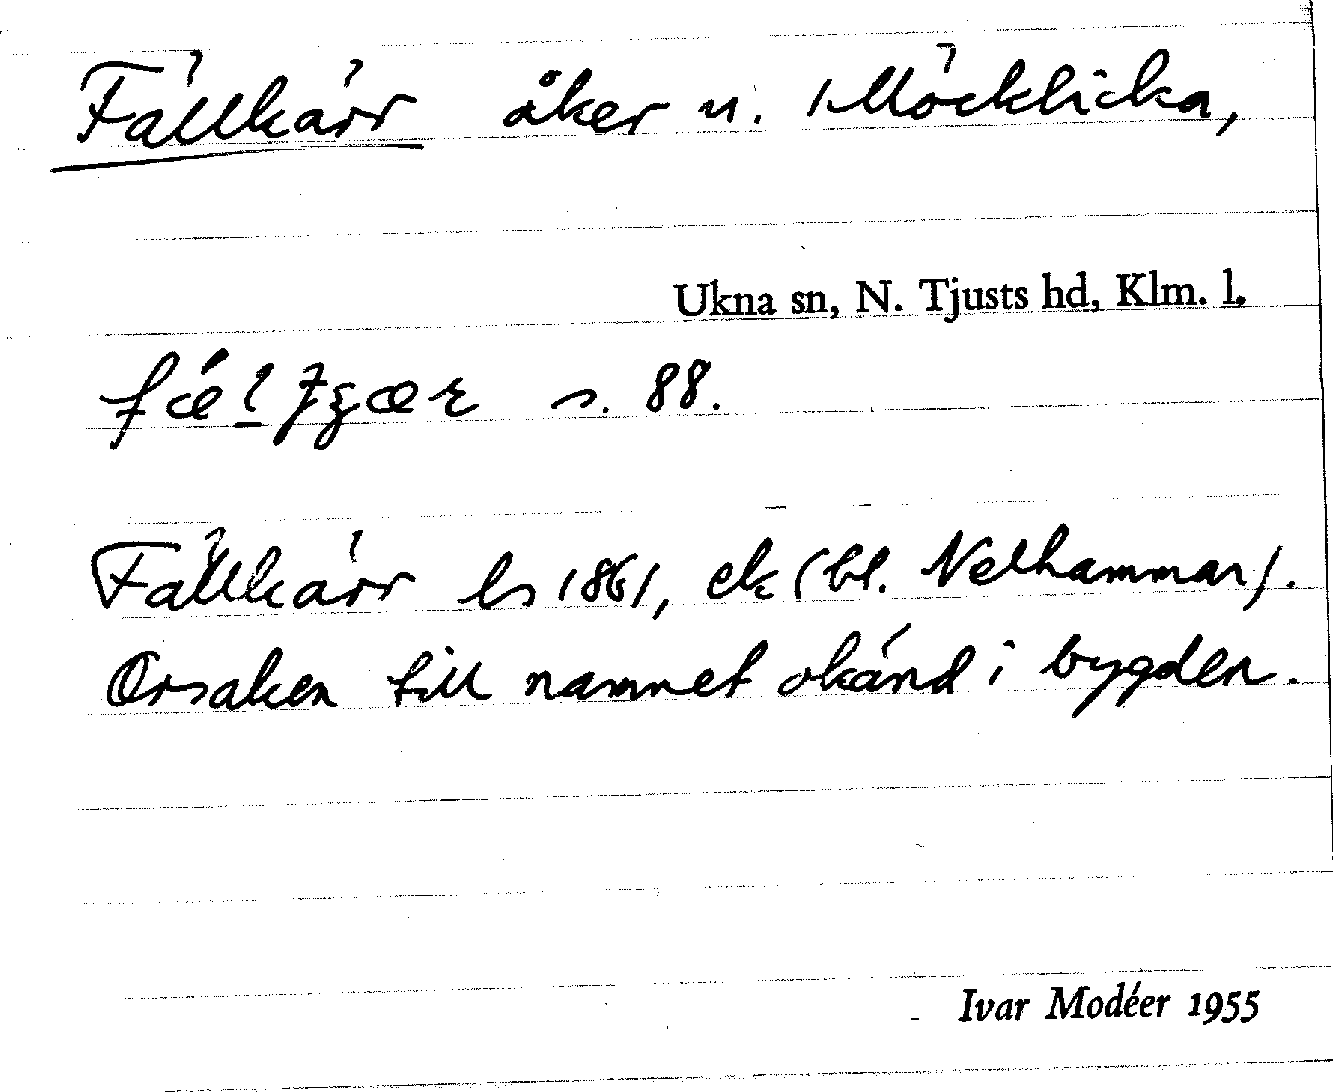 Fällkärr åker u. Möcklicka,
Ukna sn, N. Tjusts hd, Klm. l.
s. 88.
Fällkärr ls 1861, ek (bl. Nelhammar).
Orsaken till namnet okänd i bygden.
Ivar Modéer 1955